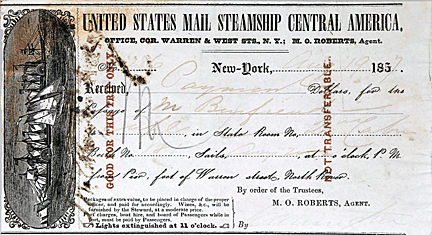 UNITED STATES MAIL STEAMSHIP CENTRAL AMERICA,
OFFICE, COR. WARREN & WEST STS., N. Y.; M. O. ROBERTS, Agent.
No. New-York, 185
Received, Dollars, for the
passage of
in State Room No.
Berth No. Sails, at o'clock, P. M.
from Pier, foot of Warren street, North River.
By order of the Trustees,
M. O. ROBERTS, AGENT.
By
GOOD FOR THIS TRIP ONLY
NOT TRANSFERABLE.
Packages of extra value, to be placed in charge of the proper
officer, and paid for accordingly. Wines, &c., will be
furnished by the Steward, at a moderate price.
Port charges, boat hire, and board of Passengers while in
port, must be paid by Passengers.
Lights extinguished at 11 o'clock.